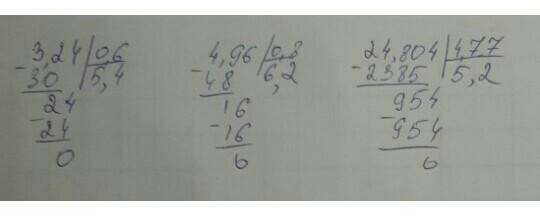 3,24 | 0,6
- 30 | 5,4
24
- 24
0
4,96 | 0,8
- 48 | 6,2
16
- 16
0
24,804 | 4,77
- 2385 | 5,2
954
- 954
0